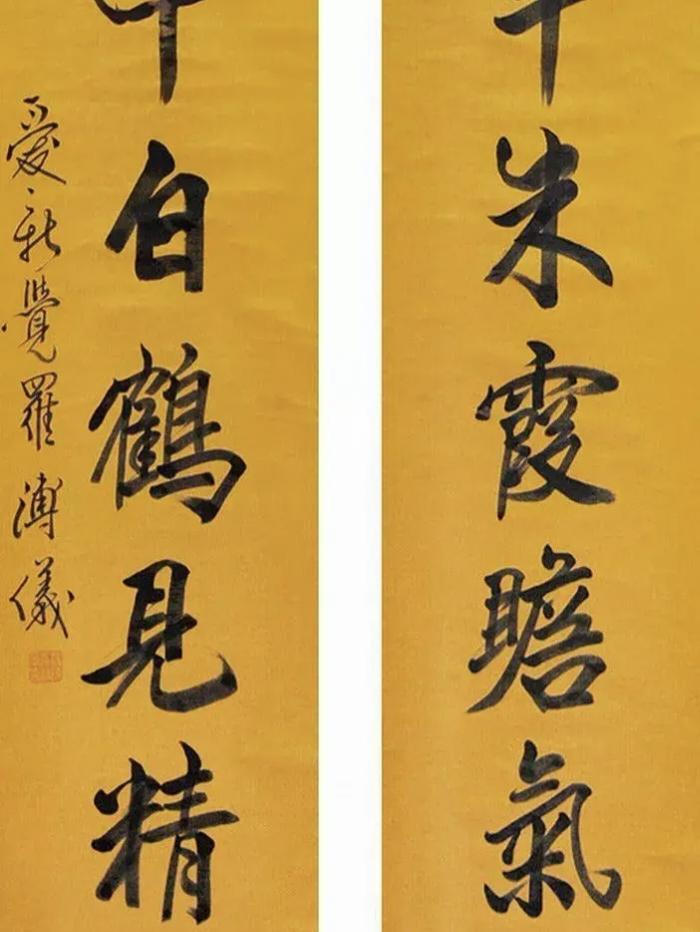 朱霞瞻氣
白鶴見精
愛新覺羅溥儀